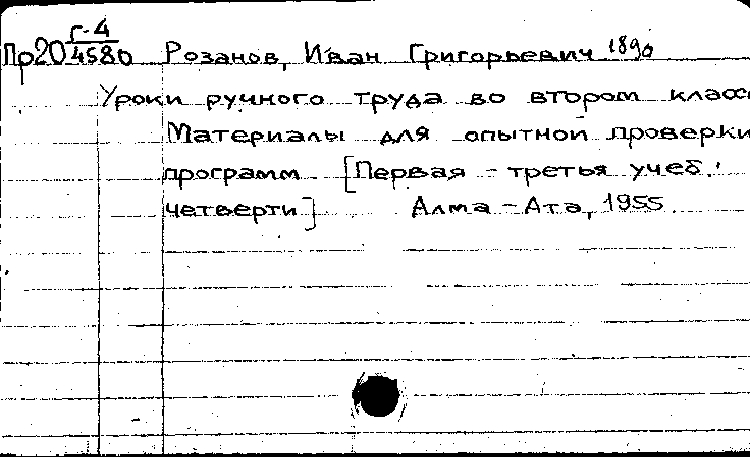 Г-4
Пр20 4580 Розанов, Иван Григорьевич 1890
Уроки ручного труда во втором класс
Материалы для опытной проверки
программ. [Первая - третья учеб.
четверти] Алма-Ата, 1955.